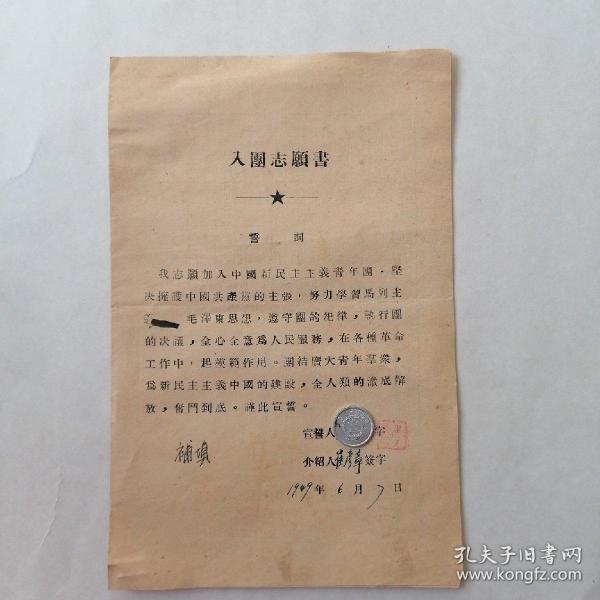 入團志願書
誓詞
我志願加入中國新民主主義青年團，堅
决擁護中國共產黨的主張，努力學習馬列主
義 毛澤東思想，遵守團的紀律，執行團
的决議，全心全意爲人民服務，在各種革命
工作中，起模範作用。團結廣大青年羣衆，
爲新民主主義中國的建設，全人類的澈底解
放，奮鬥到底。謹此宣誓。
宣誓人 字
補填
介紹人 簽字
1949年6月7日
孔夫子旧书网
www.kongfz.com